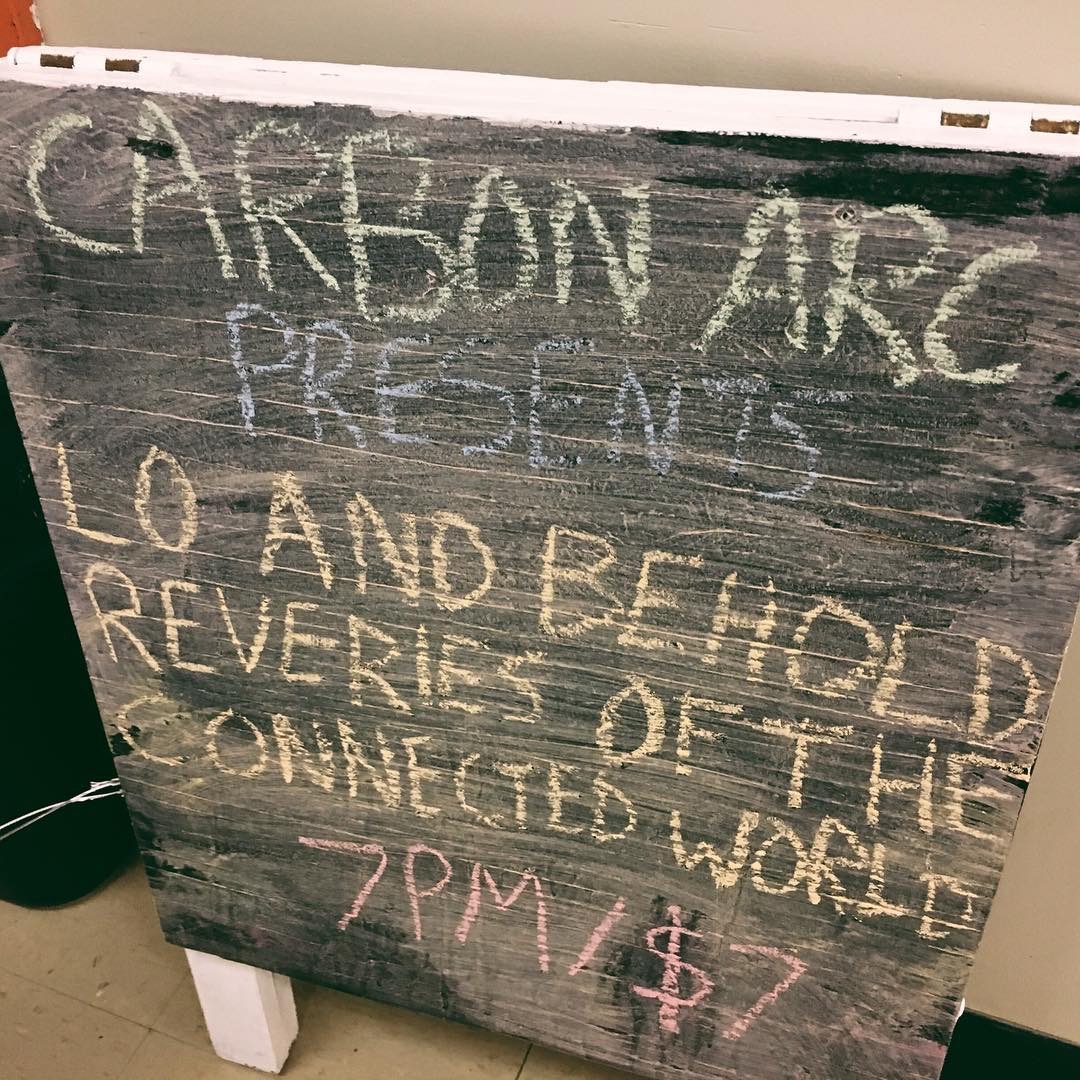 CARBON ARC
PRESENTS
LO AND BEHOLD
REVERIES OF THE
CONNECTED WORLD
7PM/$7